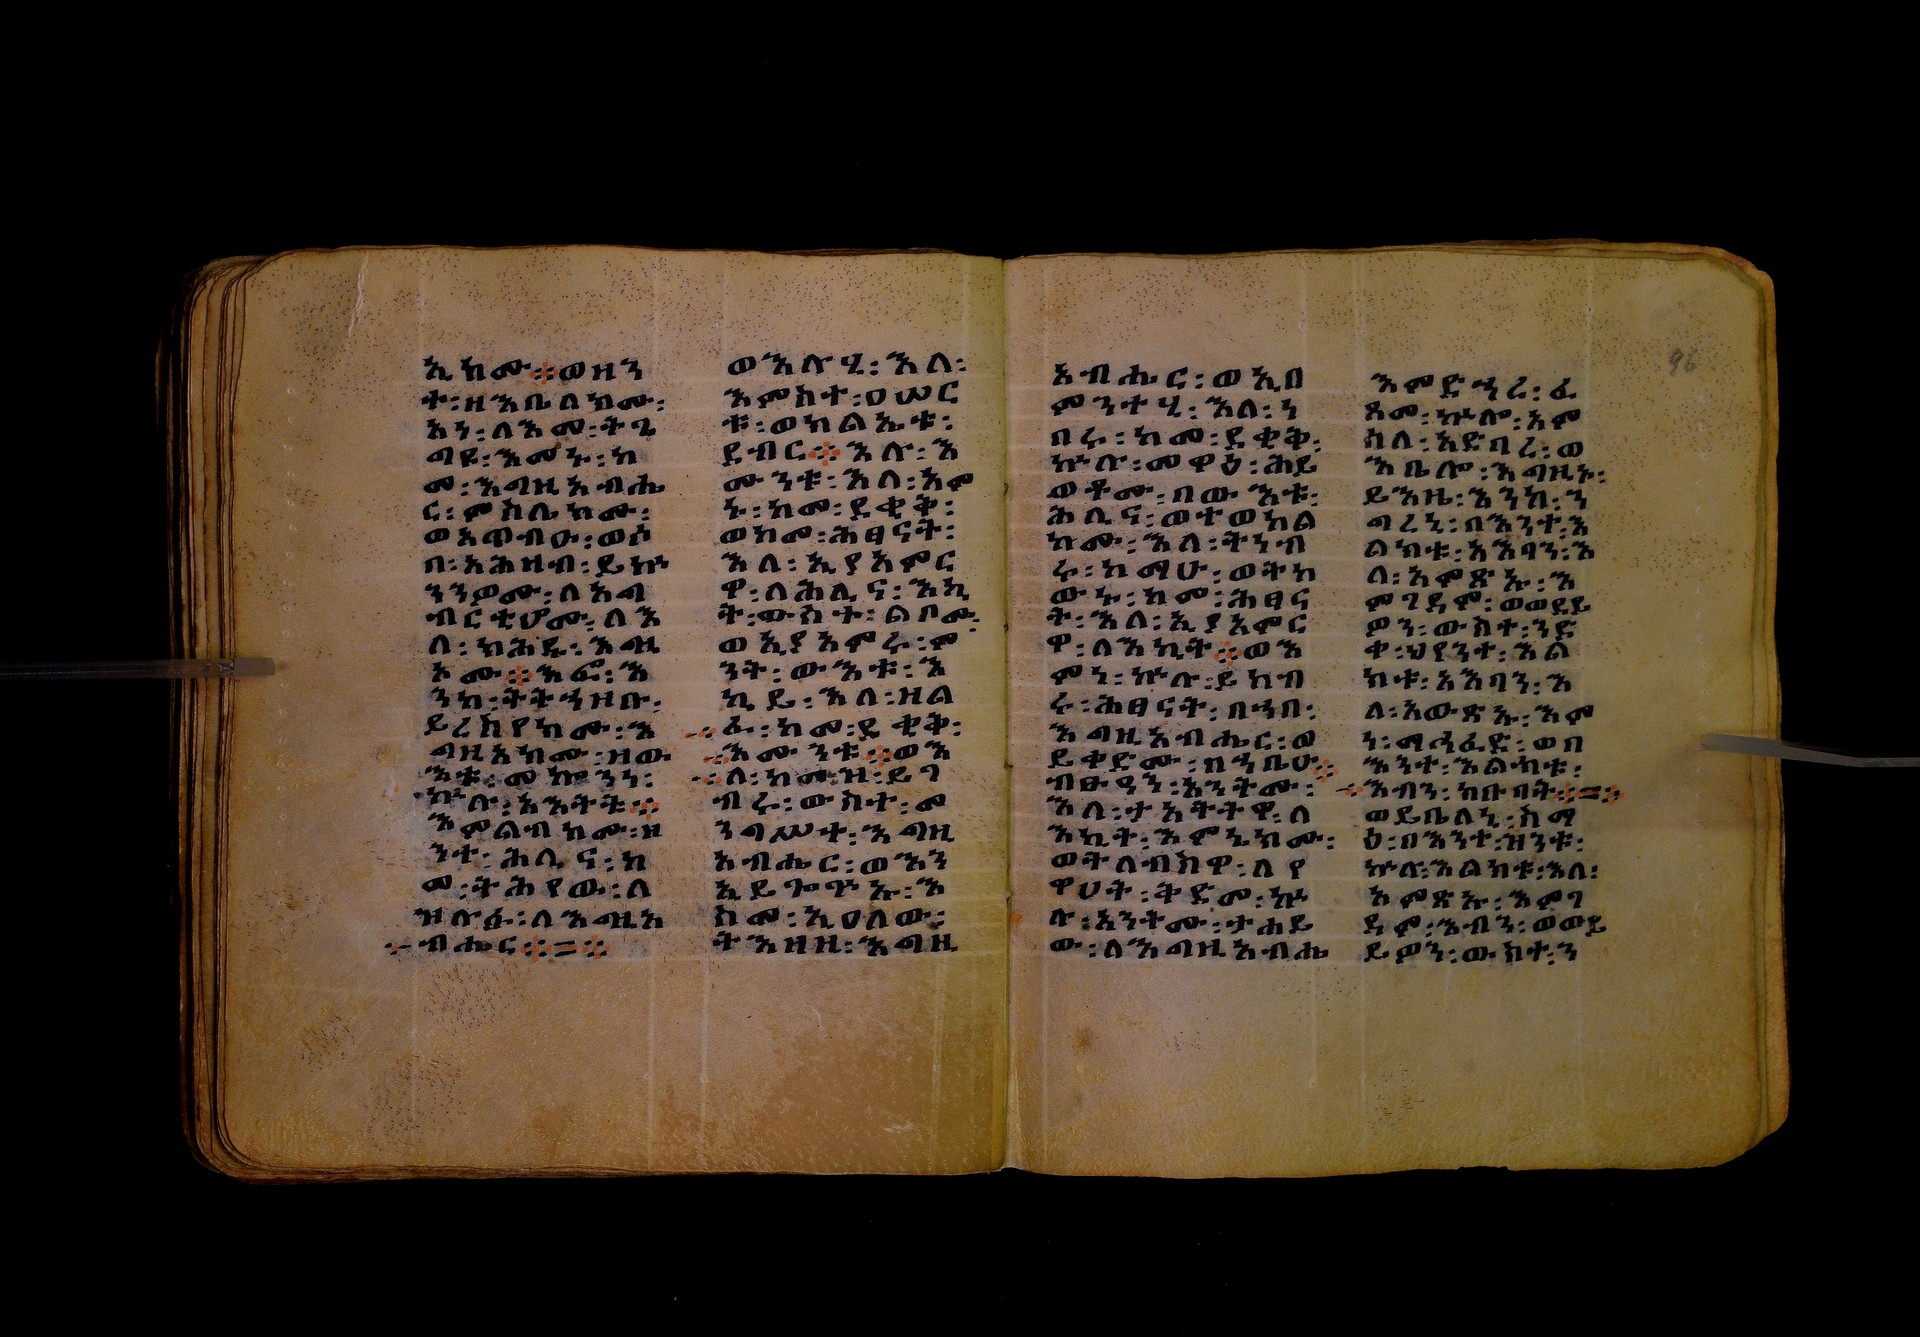 ኢክሙ፨ወዘን
ተ፡ዘእቤለክሙ፡
አነ፡ለእመ፡ትጌ
ግዩ፡እመኑ፡ከ
መ፡እግዚአብሔ
ር፡ምስሌክሙ፡
ወአጥብዑ፡ወሶ
በ፡አሕዛብ፡ይኴ
ንንዎሙ፡ለእግ
ብርቲሆሙ፡ለእ
ለ፡ከሕዱ፡እግዚ
አሙ፨እፎ፡እ
ንከ፡ትትኀዘቡ፡
ይረስየክሙ፡እ
ግዚአክሙ፡ዘው
እቱ፡መኰንነ፡
ኵሉ፡አአትት፨
እምልብክሙ፡ዘ
ንተ፡ሕሊና፡ከ
መ፡ትሕየው፡ለ
ዝሉፉ፡ለእግዚአ
ብሔር፨=፨
ወእሉሂ፡እለ፡
እምከተ፡ዐሠር
ቱ፡ወክልኤቱ፡
ደብር፨እሉ፡እ
ሙንቱ፡እለ፡አም
ኑ፡ከመ፡ደቂቅ፡
ወከመ፡ሕፃናት፡
እለ፡ኢያአምር
ዋ፡ለሕሊና፡እኪ
ት፡ውስተ፡ልቦሙ፡
ወኢያአምሩ፡ም
ንት፡ውእቱ፡እ
ኪይ፡እለ፡ዘል
ፉ፡ከመ፡ደቂቅ፡
እሙንቱ፨ወእ
ለ፡ከመዝ፡ይገ
ብሩ፡ውስተ፡መ
ንግሥተ፡እግዚ
አብሔር፡ወእን
አይጐጕኡ፡እ
ስመ፡ኢዐለው፡
ትእዛዘ፡እግዚ
አብሔር፡ወኢበ
ምንተሂ፡እለ፡ነ
በሩ፡ከመ፡ደቂቅ፡
ኵሉ፡መዋዕለ፡ሕይ
ወቶሙ፡በውእቱ፡
ሕሊና፡ወተወክል
ክሙ፡እለ፡ትነብ
ሩ፡ከማሁ፡ወትከ
ውኑ፡ከመ፡ሕፃና
ት፡እለ፡ኢያአምር
ዋ፡ለእኪት፨ወእ
ምነ፡ኵሉ፡ይከብ
ሩ፡ሕፃናት፡በኀበ፡
እግዚአብሔር፡ወ
ይቀድሙ፡በኀቤሁ፨
ብፁዓን፡አንትሙ፡
እለ፡ታአትትዋ፡ለ
እኪት፡እምኔክሙ፡
ወትለብስዋ፡ለየ
ዋሀት፡ትድመ፡ኵ
ሉ፡አንትሙ፡ታሐይ
ው፡ለእግዚአብሔ
እምድኅረ፡ፈ
ጸመ፡ኵሎ፡አም
ሰለ፡አድባረ፡ወ
እቤሎ፡እግዚኡ፡
ይእዜ፡እንከ፡ን
ግረኒ፡በእንተ፡እ
ልክቱ፡አእባን፡እ
ለ፡አምጽኡ፡እ
ምገዳም፡ወወደይ
ዎን፡ውስተ፡ንድ
ቀ፡ህየንተ፡እል
ክቱ፡አእባን፡እ
ለ፡አውጽኡ፡እም
ነ፡ማኅፈድ፡ወበ
እንተ፡እልክቱ፡
እብን፡ክቡባት፨=፨
ወይቤለኒ፡ስማ
ዕ፡በእንተ፡ዝንቱ፡
ኵሉ፡እልክቱ፡እለ፡
አምጽኡ፡እምገ
ዳም፡እብን፡ወወደ
ይዎን፡ውስተ፡ን